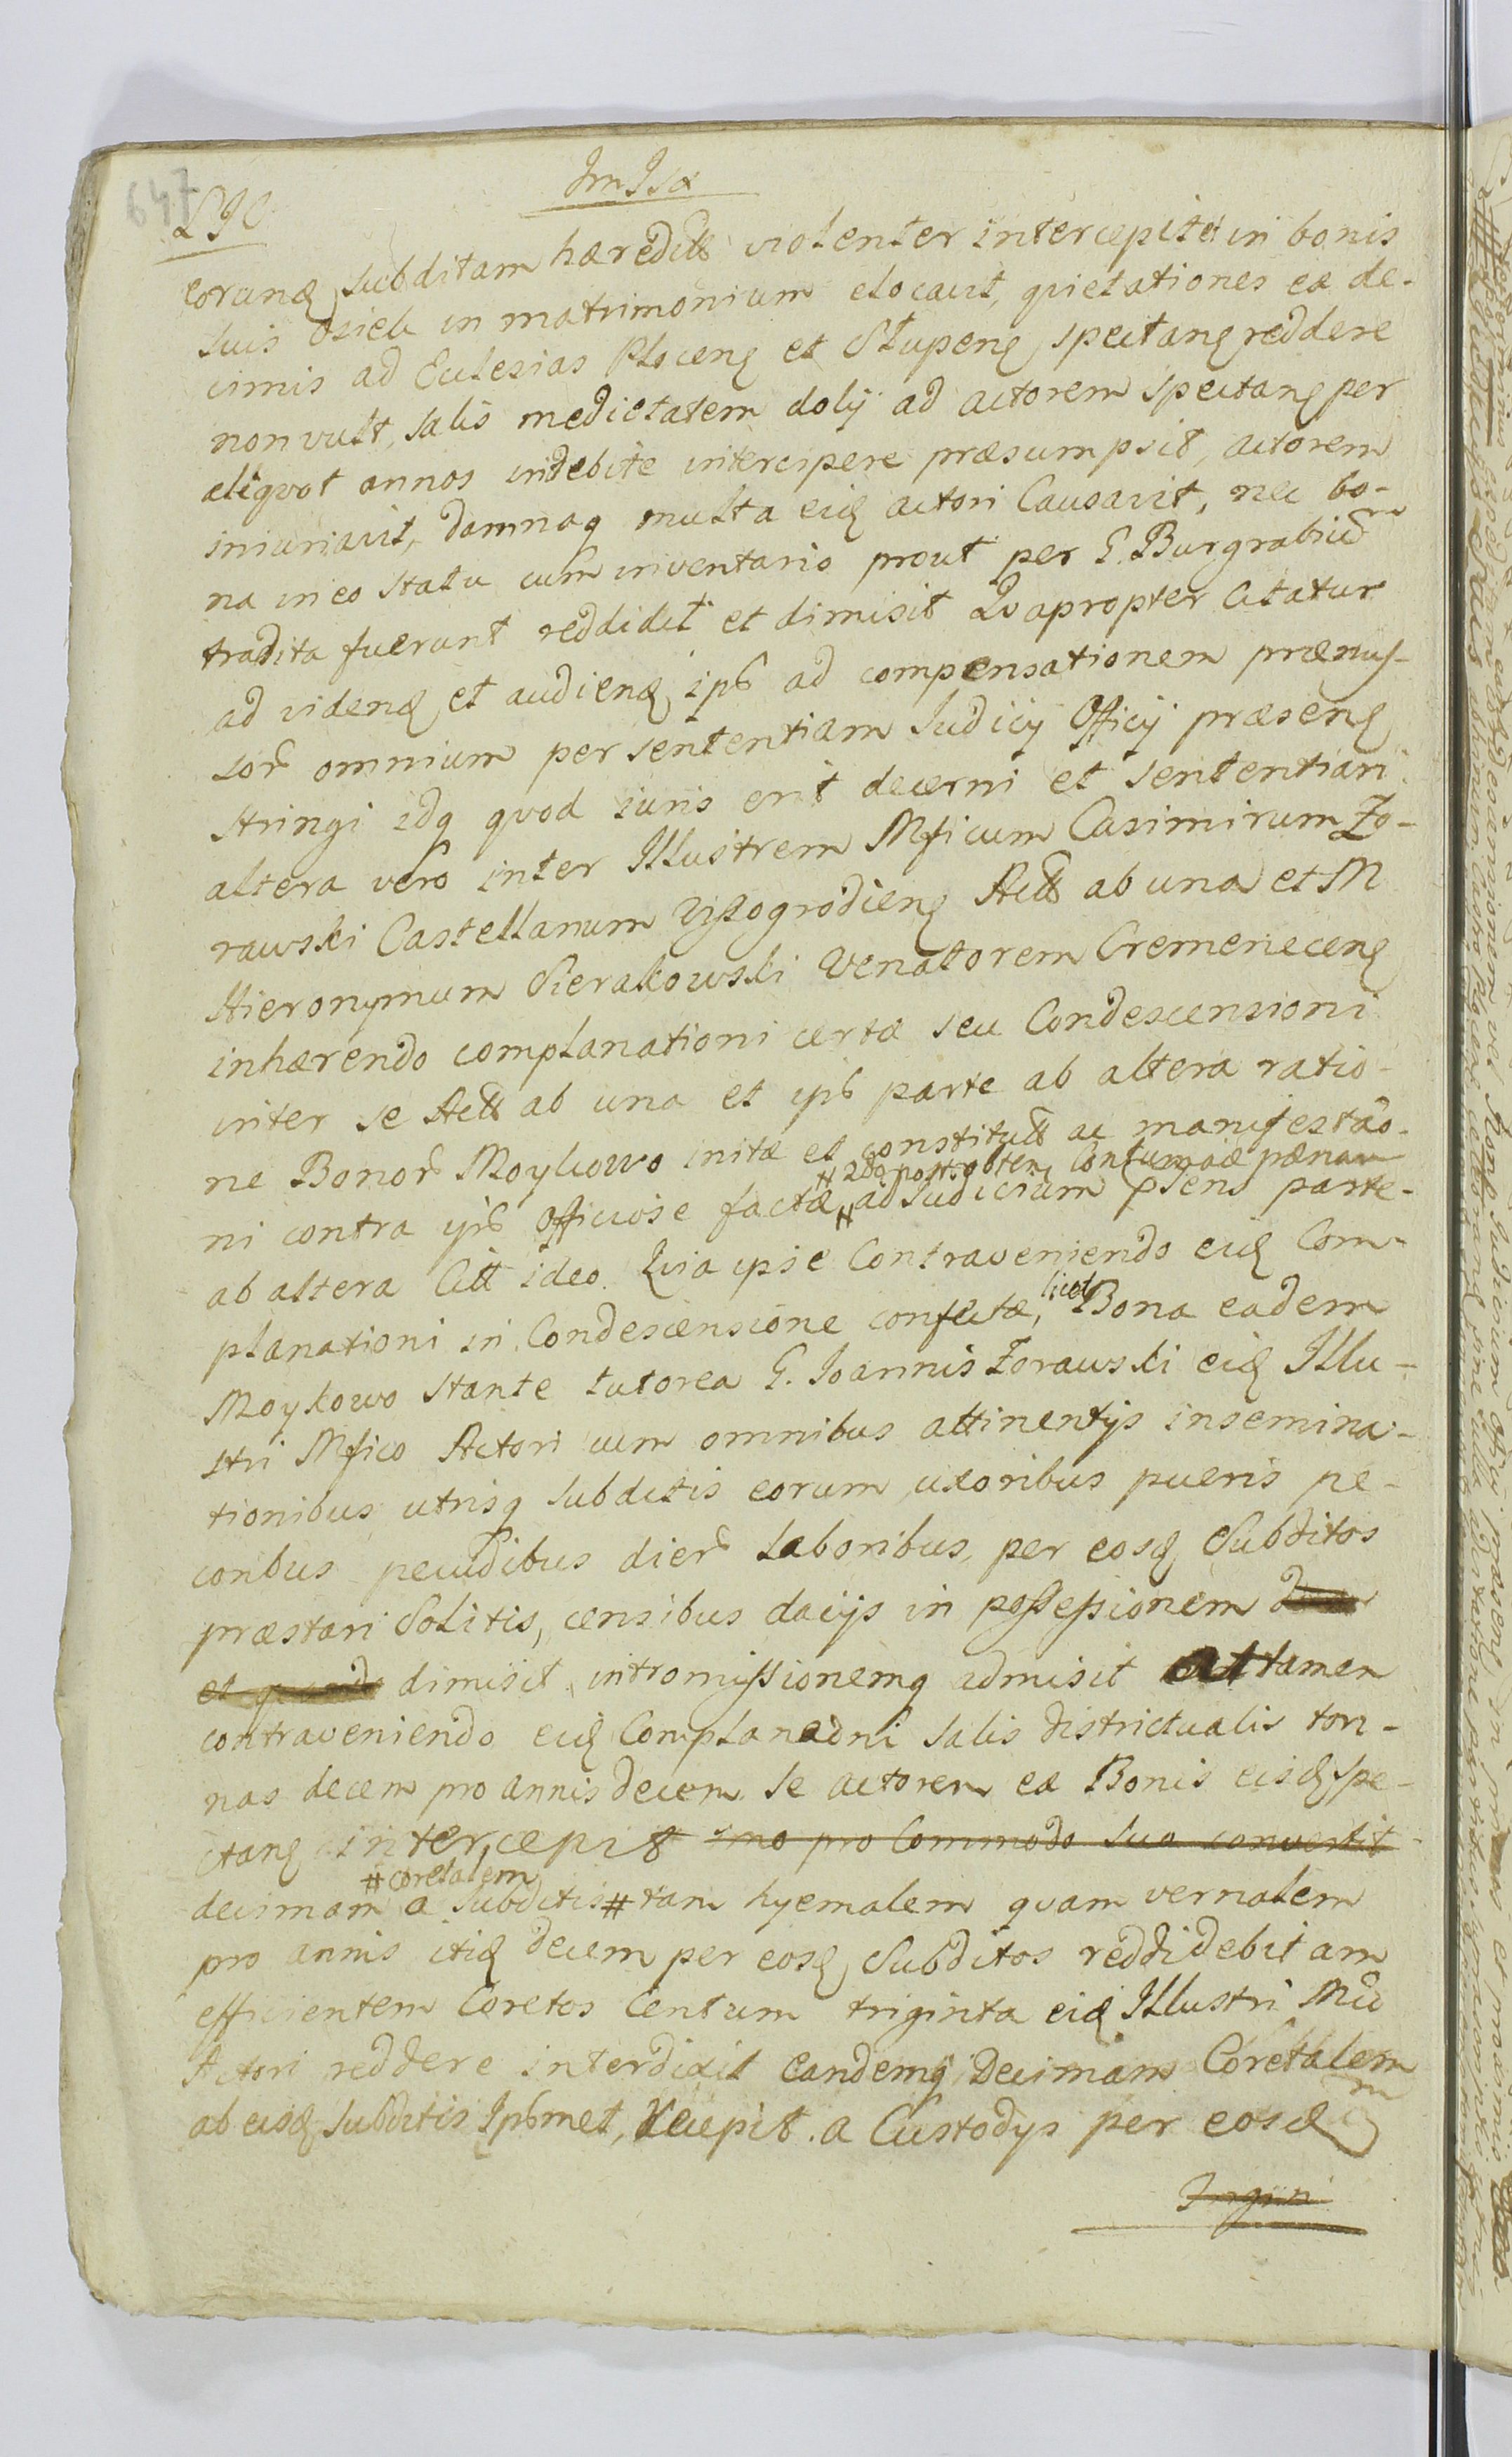 647
Imisa
eorund subditam hæredit violenter intercepit et in bonis
suis Osiek in matrimonium elocavit, quietationes ex de-
cimis ad Ecclesias Plocens et Slupens spectans reddere
non vult, salis medietatem dolij ad actorem spectans per
aliquot annos indebite intercipere præsumpsit, actorem
iniuriavit, damnaq multa eid actori Causavit, nec bo-
na in eo statu cum inventario prout per G. Burgrabium
tradita fuerunt reddidit et dimisit Quapropter Citatur
ad vidend et audiend ips ad compensationem præmis-
sor omnium per sententiam Judicij Officij præsens
stringi idq quod iuris erit decerni et sententiari
altera vero inter Illustrem Mficum Casimirum Zo-
rawski Castellanum Wyszogrodiens Act ab una et M
Hieronymum Sierakowski Venatorem Cremenecens
inhærendo complanationi certæ seu Condescensioni
inter se Act ab una et ips parte ab altera ratio-
ne Bonor Moykowo initæ et constitut ac manifestao-
# 2do post obten Contumaciæ pænam
ni contra ips Officiose factæ # ad Judicium psens parte-
ab altera Citt ideo. Quia ipse Contraveniendo eid Com-
planationi in Condescensione confectæ, licet Bona eadem
Moykowo stante tutorea G. Joannis Zorawski eid Illu-
stri Mfico Actori cum omnibus attinentijs insemina-
tionibus utrisq subditis eorum uxoribus pueris pe-
coribus pecudibus dier laboribus, per eosd Subditos
præstari Solitis, censibus dacijs in possessionem
et dimisit, intromissionemq admisit attamen
contraveniendo eid Complanaoni salis districtualis ton-
nas decem pro annis decem se actorem ex Bonis eisd spe-
ctans intercepit imo pro Commodo suo convertit
# coretalem
decimam a subditis # tam hyemalem quam vernalem
pro annis itid decem per eosd Subditos reddi debitam
efficientem Coretos Centum triginta eid Illustri Mco
Actori reddere interdixit eandemq Decimam Coretalem
ab eisd subditis Ipsmet, recepit. a Custodys per eosd